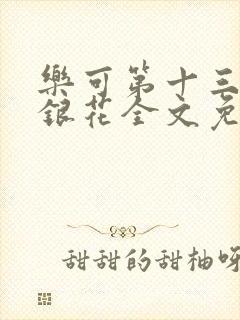 樂可第十三
銀花全文免
甜甜的甜柚呀